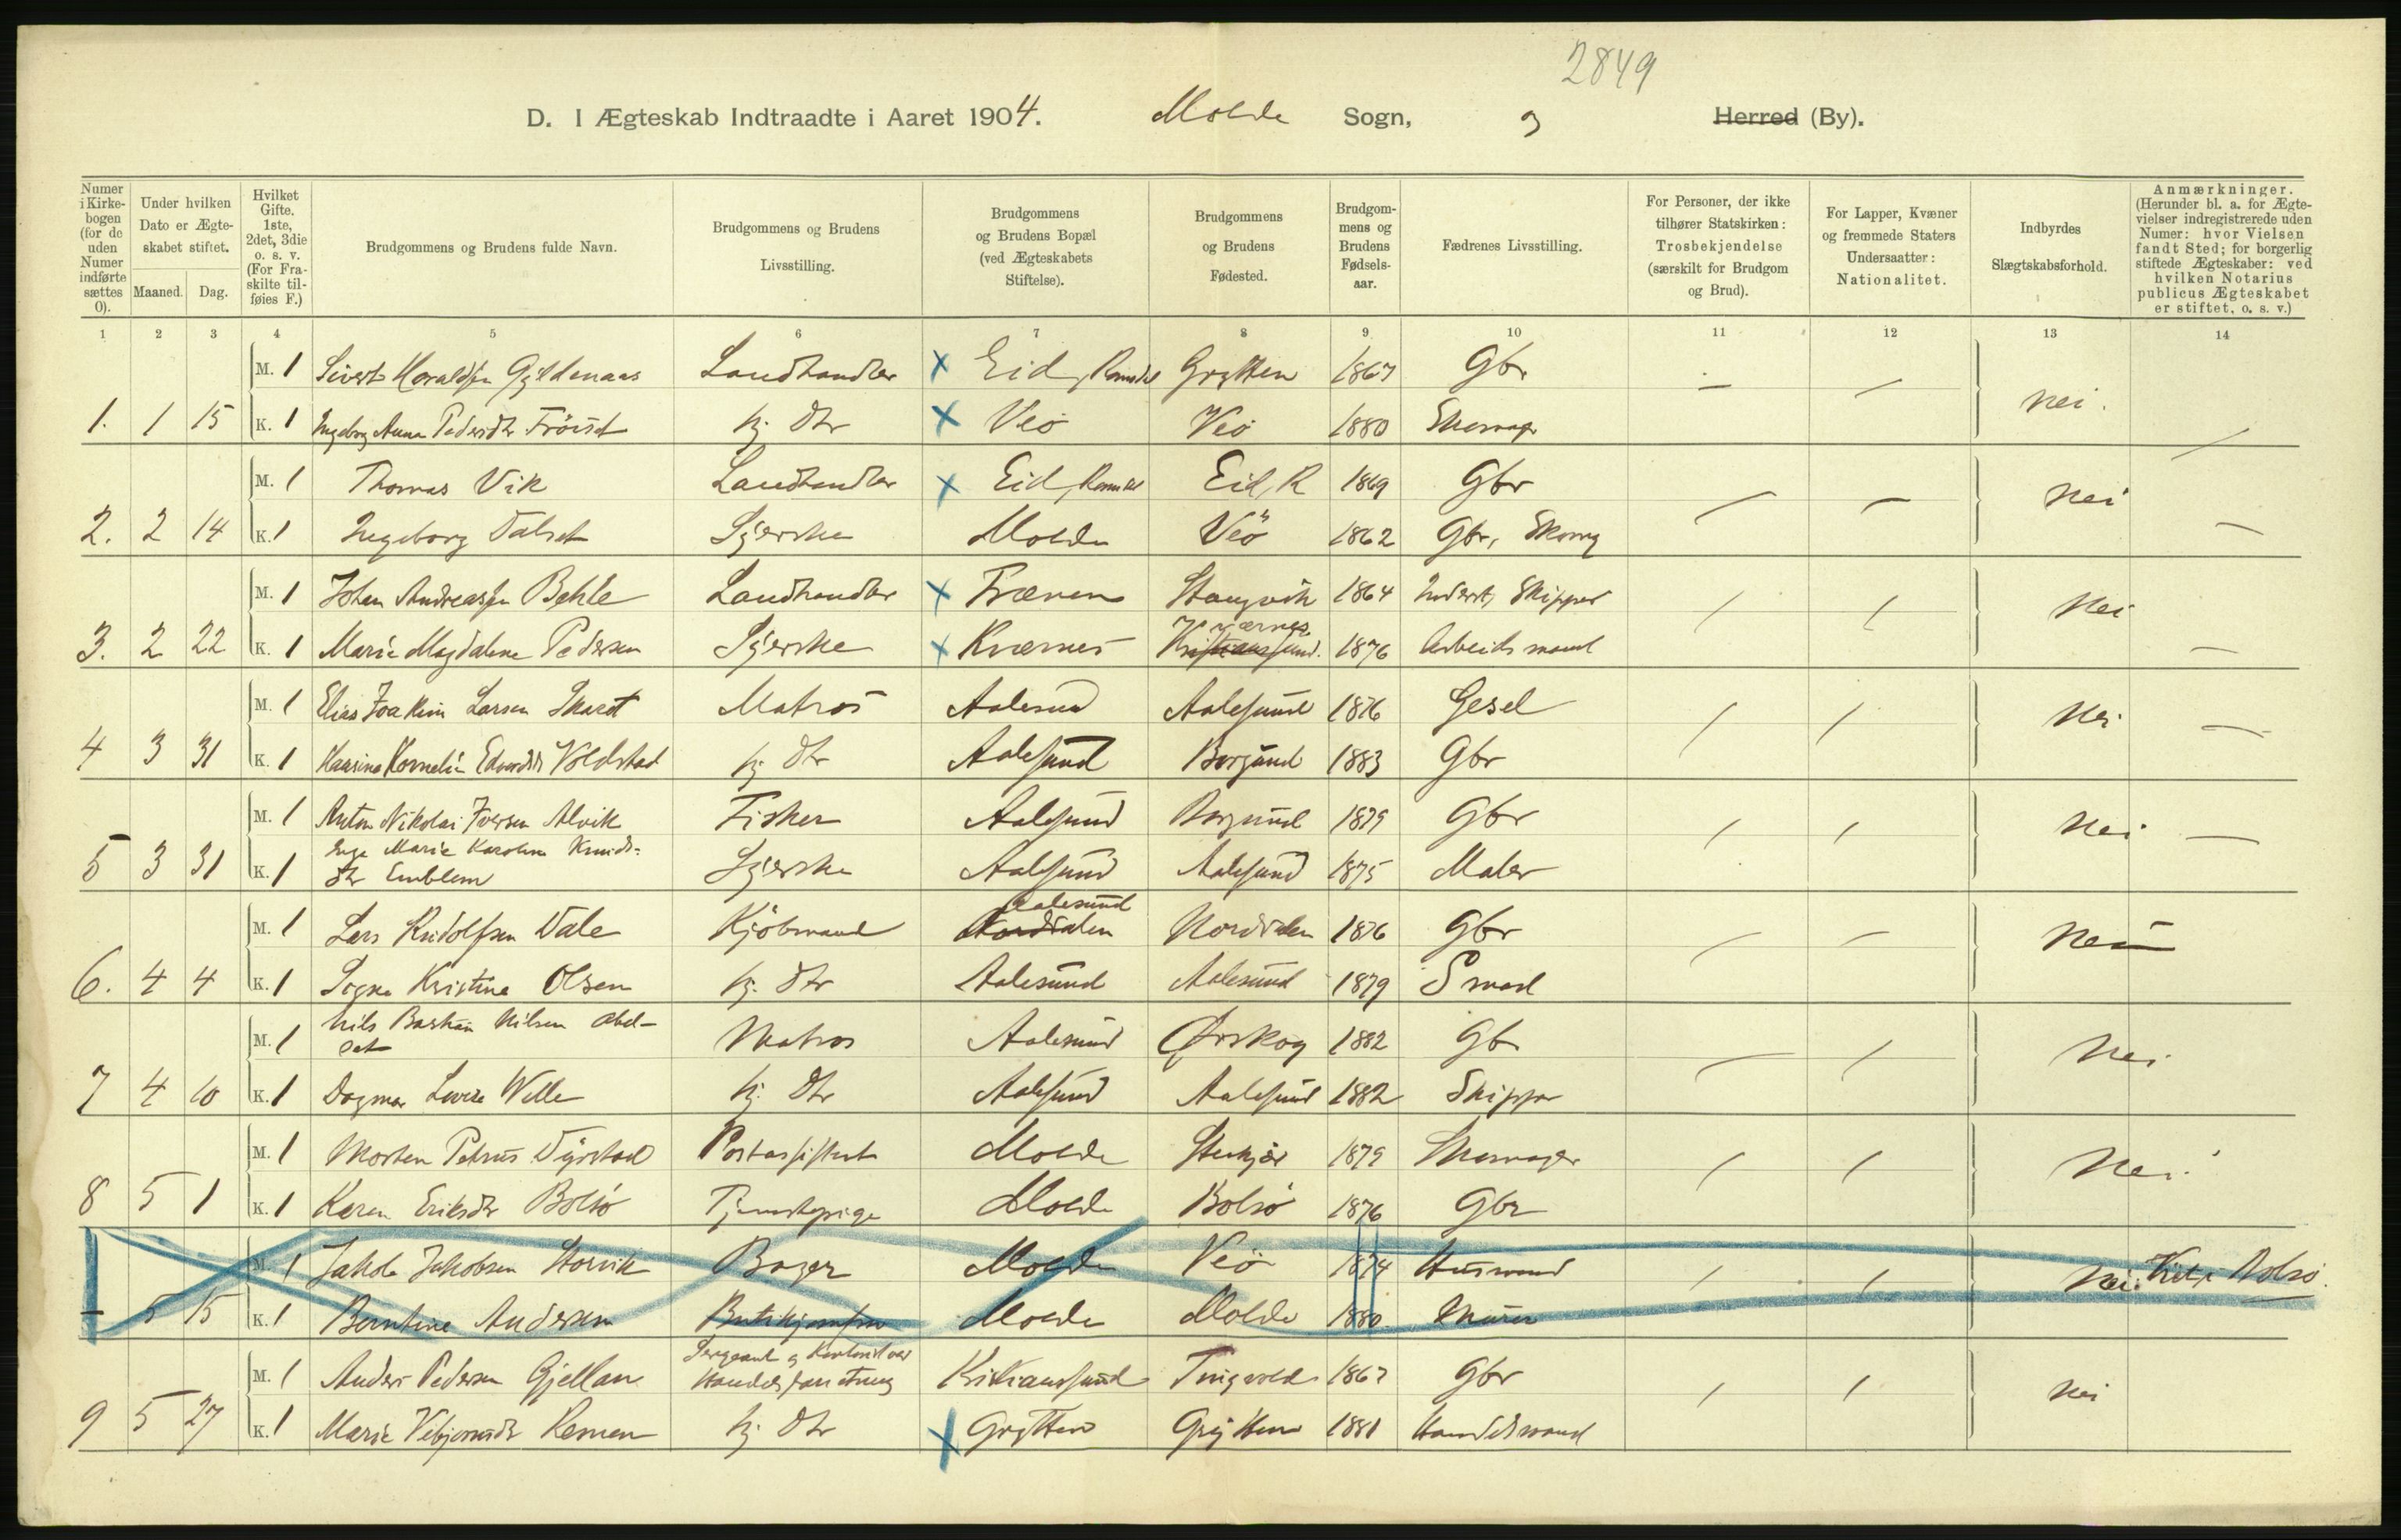 2849
D. I Ægteskab Indtraadte i Aaret 1904. Molde Sogn, Herred (By).
Numer i Kirkebogen (for de uden Numer indførte sættes 0).
Under hvilken Dato er Ægteskabet stiftet.
Maaned. Dag.
Hvilket Gifte. 1ste, 2det, 3die o. s. v. (For Fraskilte tilføies F.)
Brudgommens og Brudens fulde Navn.
Brudgommens og Brudens Livsstilling.
Brudgommens og Brudens Bopæl (ved Ægteskabets Stiftelse).
Brudgommens og Brudens Fødested.
Brudgommens og Brudens Fødselsaar.
Fædrenes Livsstilling.
For Personer, der ikke tilhører Statskirken: Trosbekjendelse (særskilt for Brudgom og Brud).
For Lapper, Kvæner og fremmede Staters Undersaatter: Nationalitet.
Indbyrdes Slægtskabsforhold.
Anmærkninger. (Herunder bl. a. for Ægtevielser indregistrerede uden Numer: hvor Vielsen fandt Sted; for borgerlig stiftede Ægteskaber: ved hvilken Notarius publicus Ægteskabet er stiftet, o. s. v.)
1 2 3 4 5 6 7 8 9 10 11 12 13 14
M. 1 Sivert Haraldsen Gyldenaas Landhandler × Eid, Romsdal Grytten 1867 Gbr — —
1. 1 15 K. 1 Ingeborg Anna Pedersdtr Fröiset hj. Dtr × Veö Veö 1880 Skomager nei.
M. 1 Thomas Vik Landhandler × Eid, Romsdal Eid, R 1869 Gbr — — nei
2. 2 14 K. 1 Ingeborg Dalset Syerske Molde Veö 1862 Gbr, Skomg —
M. 1 Johan Andreassen Bahle Landhandler × Frænen Stangvik 1864 Skipper nei
3. 2 22 K. 1 Marie Magdalene Pedersen Syerske × Kværnes Kværnes Kristianssund. 1876 Arbeidsmand —
M. 1 Elias Joakim Larsen Skaret Matros Aalesund Aalesund 1876 Gesel nei —
4 3 31 K. 1 Kornelia Edvardsdtr Voldstad hj. Dtr Aalesund Borgund 1883 Gbr
M. 1 Anton Nikolai Iversen Alvik Fisker Aalesund Borgund 1879 Gbr nei —
5 3 31 K. 1 Inga Marie Karoline Knuds=
dtr Emblem Syerske Aalesund Aalesund 1875 Maler
M. 1 Lars Rudolfsen Dale Kjöbmand Aalesund Norddalen Norddalen 1876 Gbr — — nei —
6. 4 4 K. 1 Signe Kristine Olsen hj. Dtr Aalesund Aalesund 1879 Smed
M. 1 Nils Bastian Nilsen Abel-
set Matros Aalesund Ørskog 1882 Gbr nei
7 4 10 K. 1 Dagmar Lovise Welle hj. Dtr Aalesund Aalesund 1882 Skipper
M. 1 Morten Petrus Dyrstad Postassistent Molde Stenkjær 1879 Skomager nei
8 5 1 K. 1 Karen Eriksdtr Bolsö Tjenestepige Molde Bolsö 1876 Gbr
M. 1 Jakob Jakobsen Storvik Bager Molde Veö 1874 Husmand nei. Viet i Bolsö.
— 5 15 K. 1 Berntine Andersen Butikjomfru Molde Molde 1880 Murer
M. 1 Anders Pedersen Gjellan Sergeant og
Kristianssund Tingvold 1867 Gbr nei
9 5 27 K. 1 Marie Remen hj. Dtr × Grytten Grytten 1881 Handelsmand